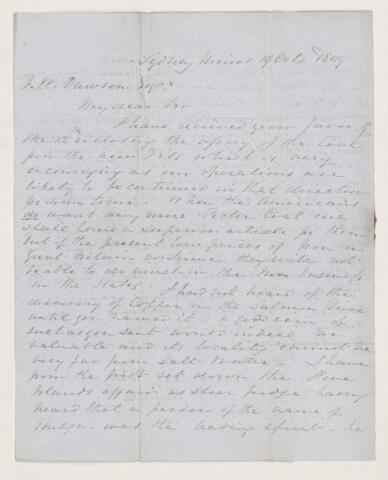 Sydney Mines 19 Octr 1849
J. W. Dawson Esqr
My dear Sir
I have received your favor of
the 12th inclosing the assay of the Coal
from the new Pits which is very
encouraging as our operations are
likely to be continued in that direction
for some time. When the Americans
do want any more Coal we
shall have a superior article for them
but if the present low prices of Iron in
Great Britain continue they will not
be able to do much in the Iron business
in the States. I had not heard of the
discovery of Copper in the Salmon River
until you named it. a good vein of
such as you sent would indeed be
valuable and its locality cannot be
very far from Salt Water. I have
from the first set down the
Islands affair as sheer fudge, having
heard that a person of the name of
was the leading spirit - he